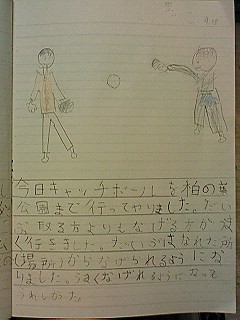 今日キャッチボールを柏の葉
公園まで行ってやりました。だい
ぶ取る方よりもなげる方が速
く行きました。だいぶはなれた所
(場所)からなげられるようにな
りました。うまくなげれるようになって
うれしかった。